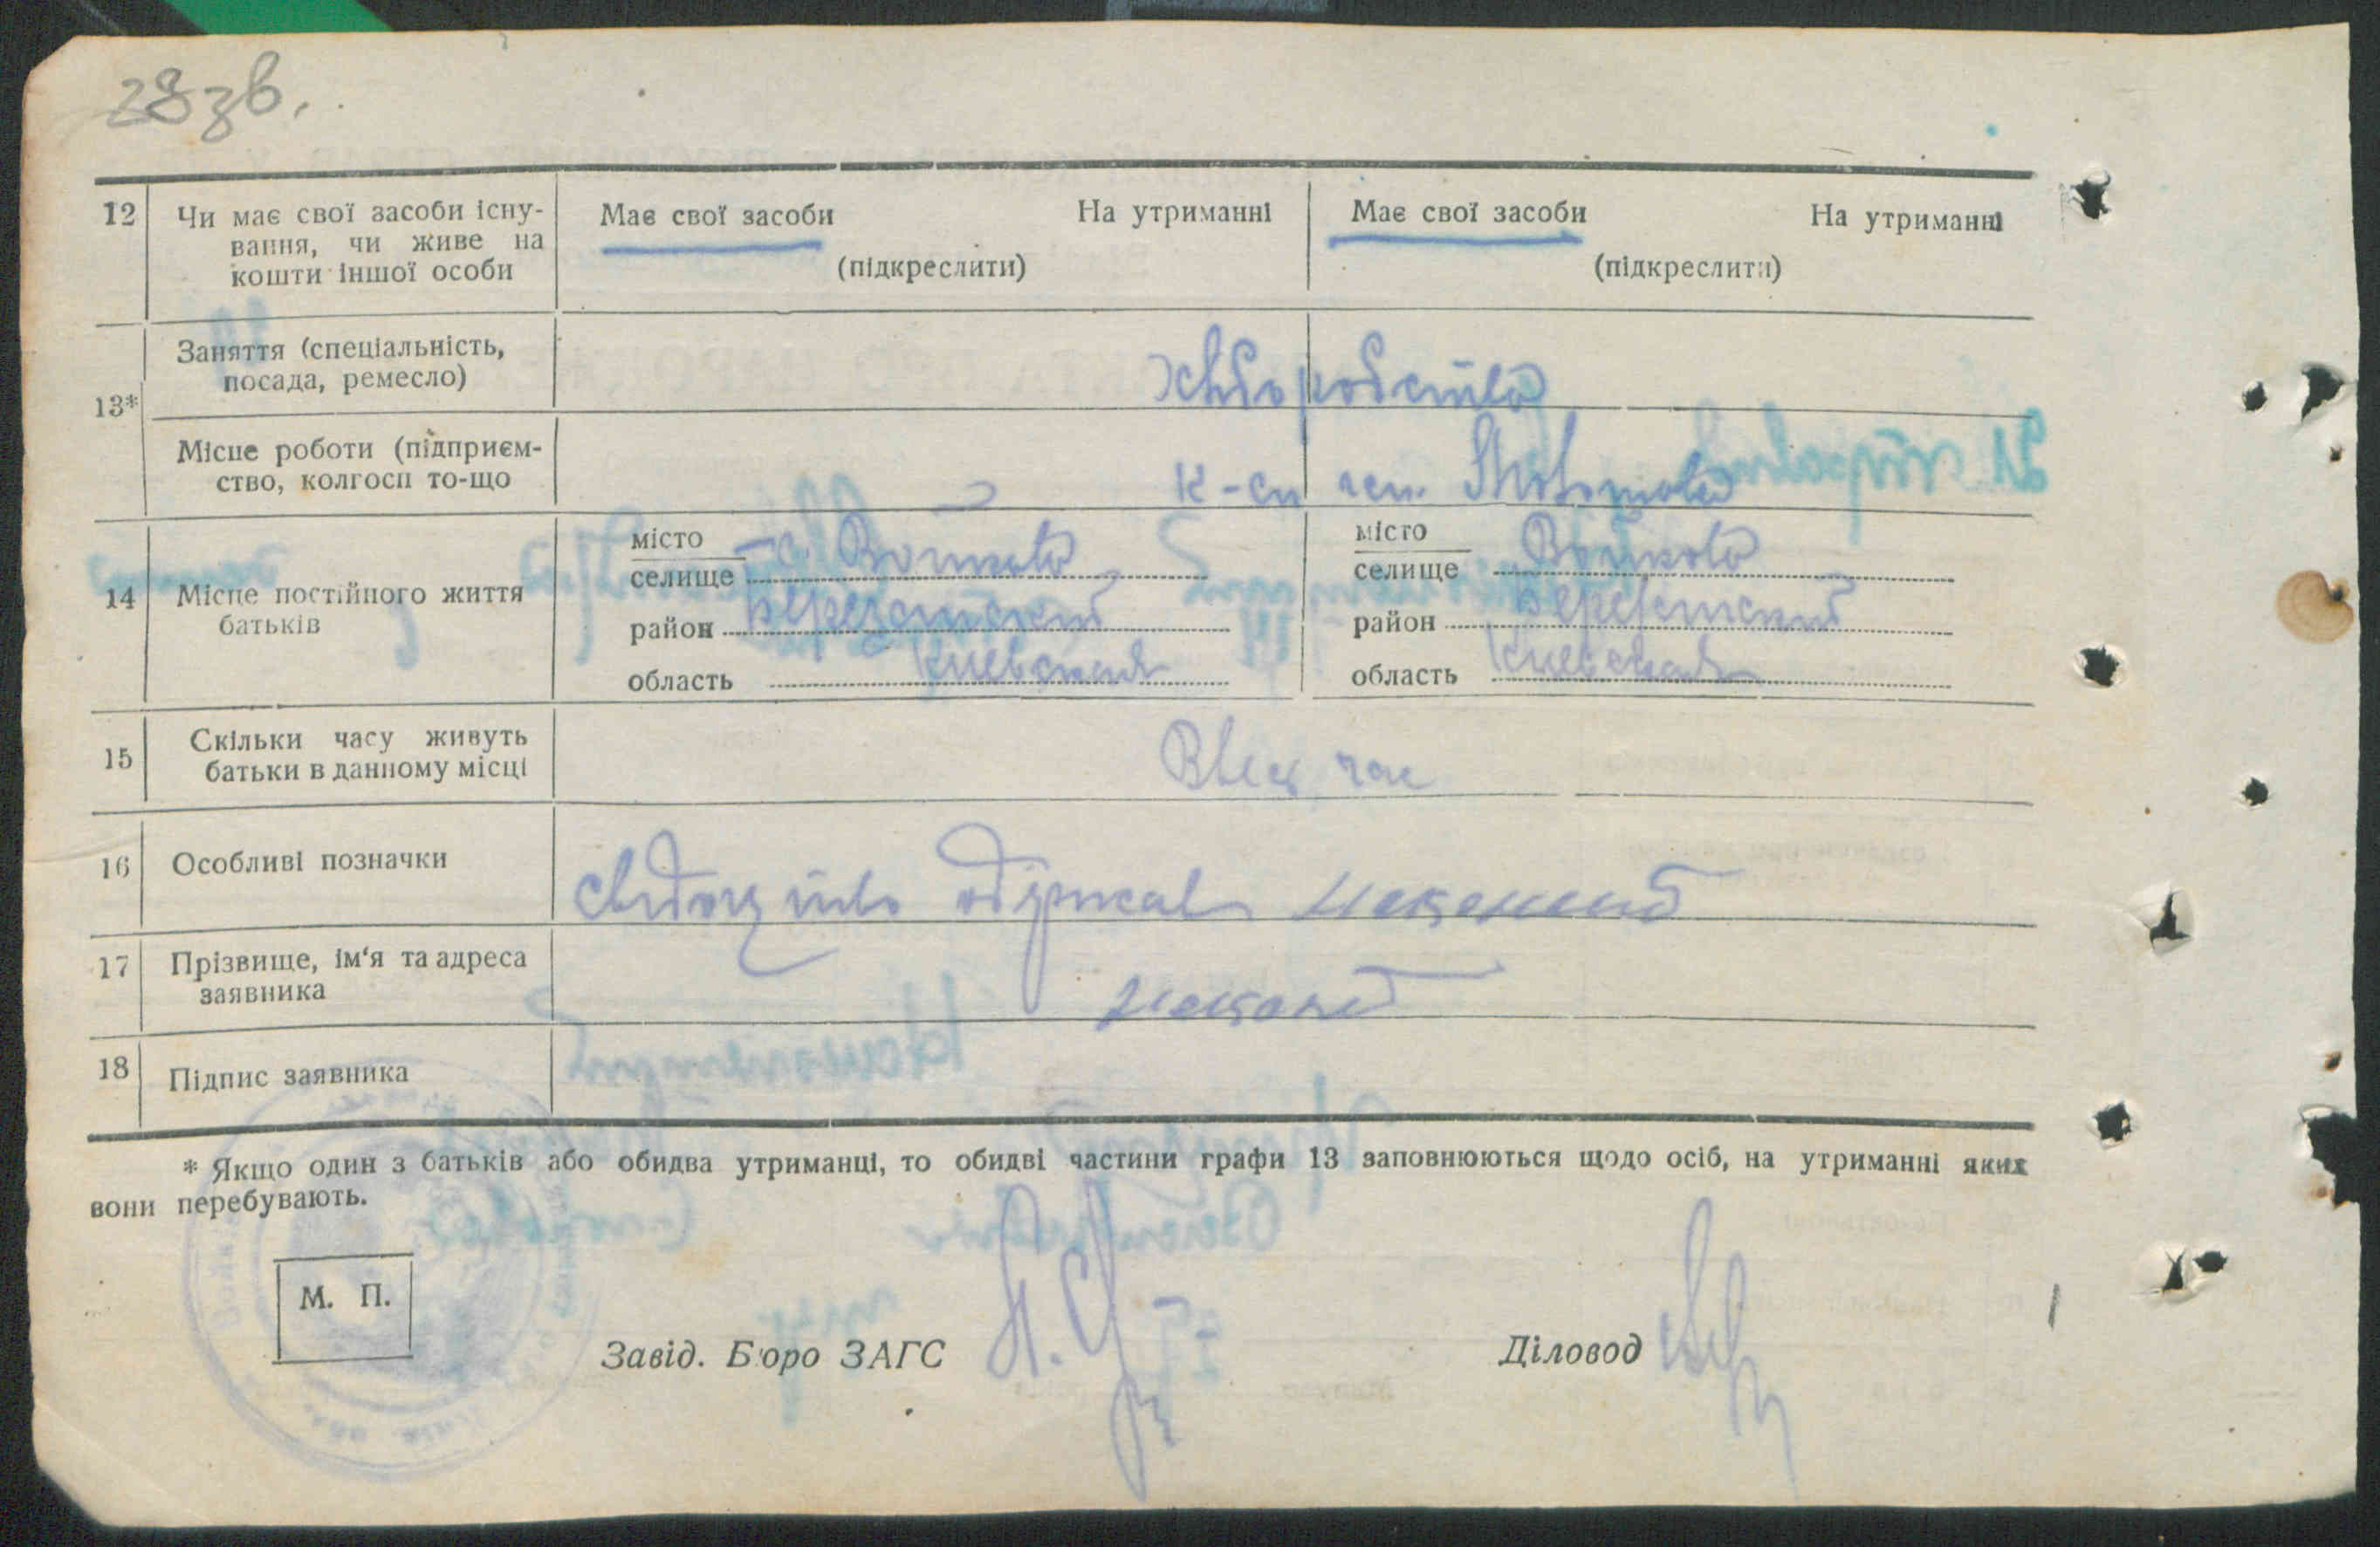 28зв.
12 Чи має свої засоби існу-
вання, чи живе на
кошти іншої особи
Має свої засоби На утриманні
(підкреслити)
Має свої засоби На утриманні
(підкреслити)
13*
Заняття (спеціальність,
посада, ремесло)
хліборобство
Місце роботи (підприєм-
ство, колгосп то-що
к-сп
14 Місце постійного життя
батьків
місто
селище с. Войково
район Березанский
область Киевская
місто
селище Войково
район Березанский
область Киевская
15 Скільки часу живуть
батьки в данному місці
Ввесь час
16 Особливі позначки
свидоцтво одержав
17 Прізвище, ім'я та адреса
заявника
18 Підпис заявника
* Якщо один з батьків або обидва утриманці, то обидві частини графи 13 заповнюються щодо осіб, на утриманні яких
вони перебувають.
М. П.
Завід. Бюро ЗАГС
Діловод